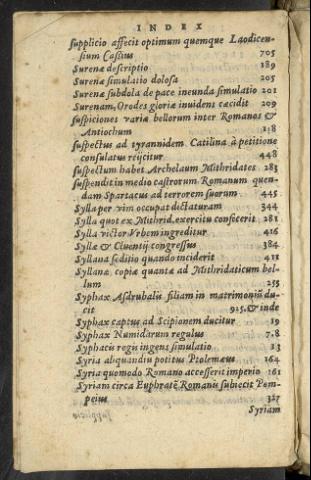 INDEX
supplicio affecit optimum quemque Laodicen-
sium Cassius 705
Surenæ descriptio 189
Surena simulatio dolosa 205
Surenæ subdola de pace ineunda simulatio 201
Surenam, Orodes gloriæ inuidens cæcidit 209
suspiciones variæ bellorum inter Romanos &
Antiochum 118
suspectus ad tyrannidem Catilina à petitione
consulatus reijcitur 448
suspectum habet Archelaum Mithridates 283
suspendit in medio castrorum Romanum quen-
dam Spartacus ad terrorem suorum 445
Sylla per vim occupat dictaturam 344
Sylla quot ex Mithrid. exercitu confecerit 281
Sylla victor Vrbem ingreditur 416
Syllæ & Cluentij congressus 384
Syllana seditio quando inciderit 411
Syllanæ copiæ quantæ ad Mithridaticum bel-
lum 255
Syphax Asdrubalis filiam in matrimoniũ du-
cit 915. & inde
Syphax captus ad Scipionem ducitur 19
Syphax Numidarum regulus 718
Syphacis regis ingens simulatio 13
Syria aliquandiu potitus Ptolemæus 164
Syria quomodo Romano accesserit imperio 161
Syriam circa Euphratẽ Romanis subiecit Pom-
peius 327
Syriam